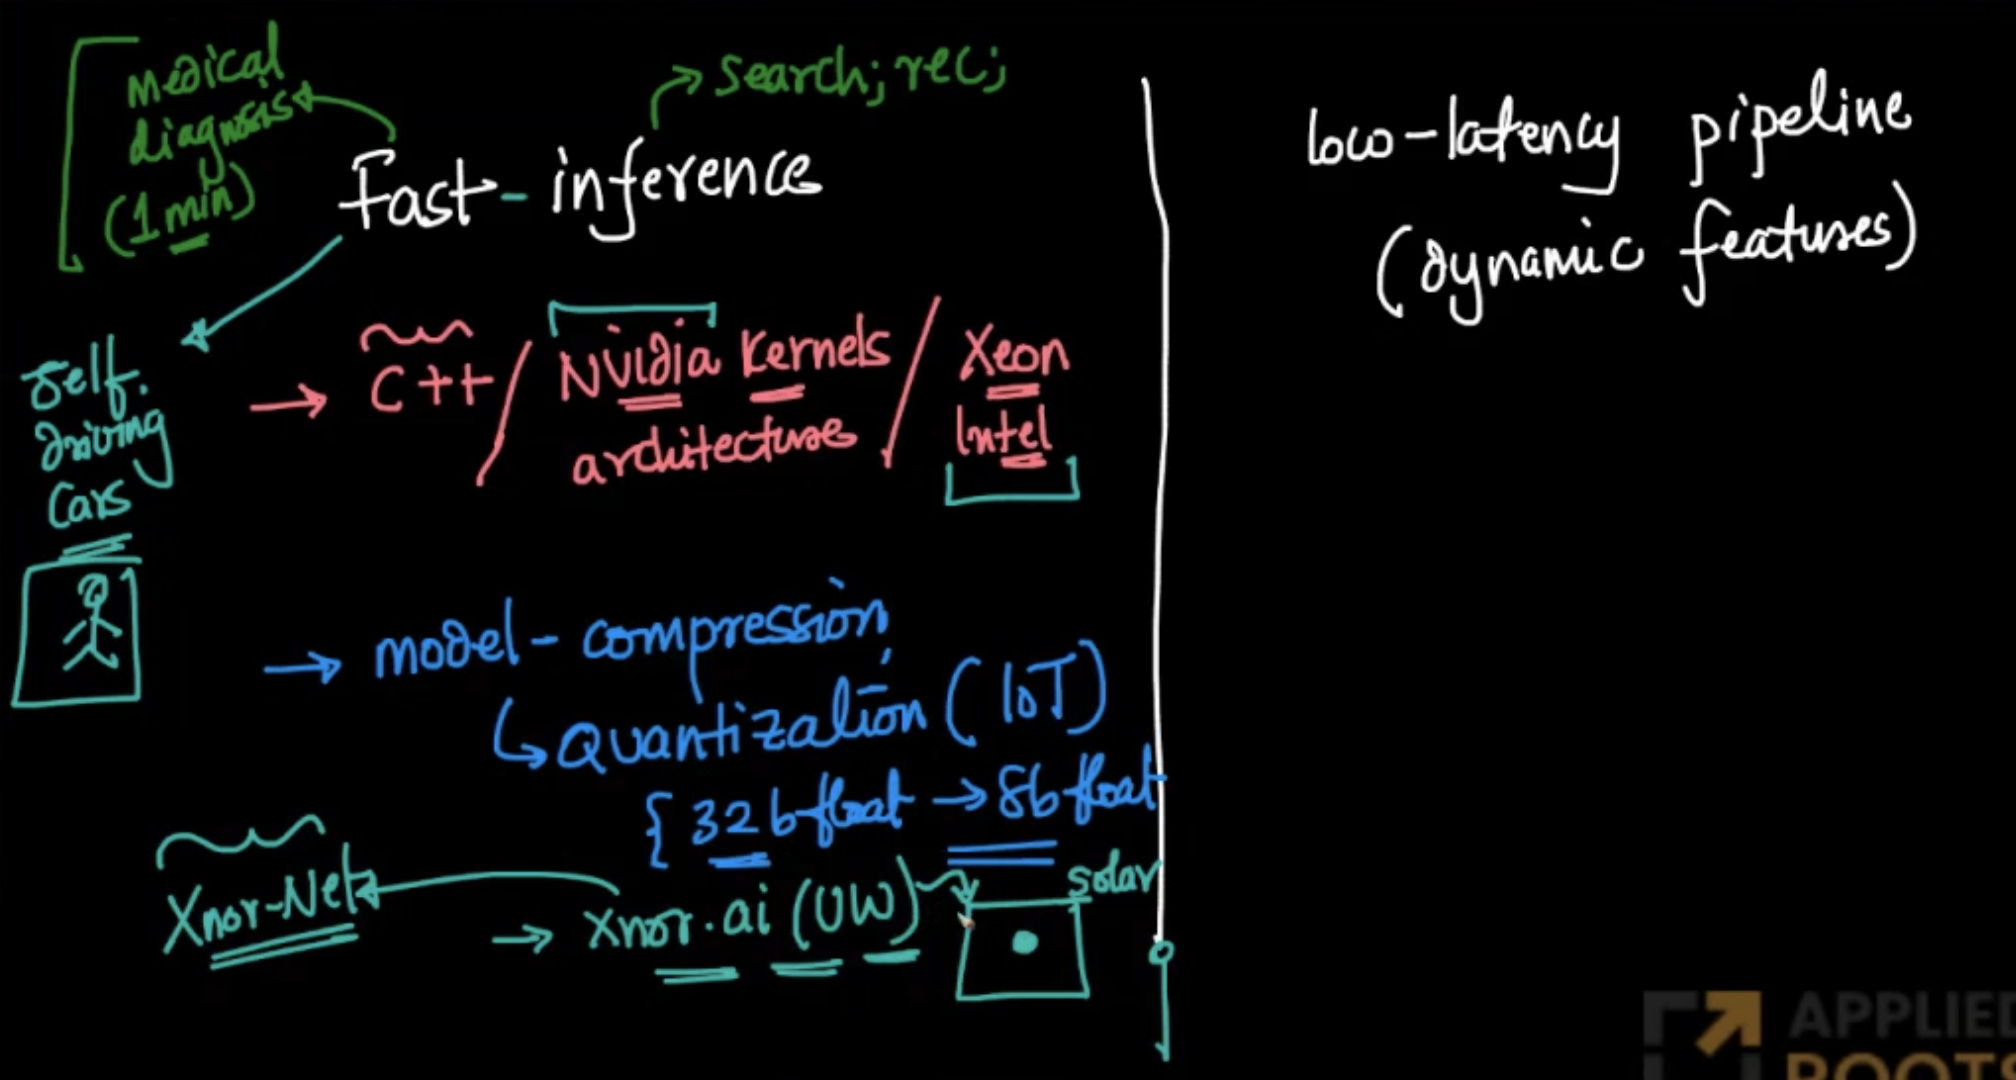 medical
diagnosis
(1 min)
search; rec;
Fast - inference
Self.
driving
Cars
C++ / Nvidia Kernels / Xeon
architectures
Intel
model - compression
Quantization (IoT)
{ 32 b float → 8b float
Xnor-Net
→ Xnor.ai (UW)
solar
low-latency pipeline
(dynamic features)
APPLIED
ROOTS